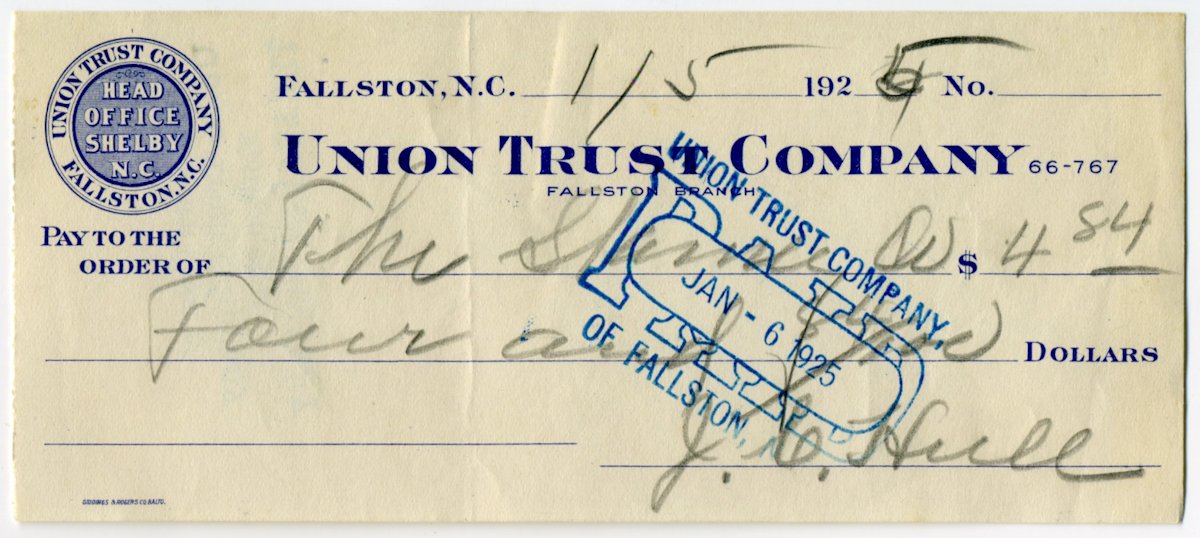 UNION TRUST COMPANY
HEAD OFFICE SHELBY N.C.
FALLSTON, N.C.
FALLSTON, N.C. 1/5 1925 NO.
UNION TRUST COMPANY 66-767
FALLSTON BRANCH
PAY TO THE
ORDER OF The $ 4 84
Four and DOLLARS
UNION TRUST COMPANY,
PAID
JAN - 6 1925
OF FALLSTON, N.
J. Hull
GIDDINGS & ROGERS CO. BALTO.